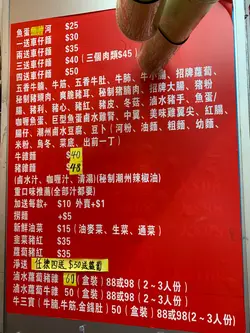 魚蛋 河 $25
一送車仔麵 $30
兩送車仔麵 $35
三送車仔麵 $40 (三個肉類$45)
四送車仔麵 $50
五香牛腩、牛筋、五香牛肚、牛肺、牛小腸、招牌蘿蔔
秘製豬頭肉、爽脆豬耳、秘製豬腩肉、招牌大腸、豬粉
腸、豬利、豬心、豬紅、豬皮、冬菇、滷水豬手、魚蛋、
咖喱魚蛋、巨型魚蛋鹵水雞腎、中翼、美味雞翼尖、紅腸、
鱔仔、潮州鹵水豆腐、豆卜(河粉、油麵、粗麵、幼麵、
米粉、烏冬、菜底、出前一丁)
牛雜麵 $40
豬雜麵 $48
(鹵水汁、咖喱汁、清湯)(秘製潮州辣椒油)
重口味推薦(全部汁都要)
加送每款+ $10 外賣+$1
撰麵 +$5
新鮮油菜 $15 (油麥菜、生菜、通菜)
韮菜豬紅 $35
蘿蔔豬紅 $35
淨送 任擇四送 $50送蘿蔔
滷水蘿蔔牛雜 60 (盒裝) 88或98(2~3人份)
滷水蘿蔔豬雜 50 (盒裝) 88或98(2~3人份)
牛三寶(牛腩.牛筋.金錢肚) 50(盒裝)98或(2~3人份)